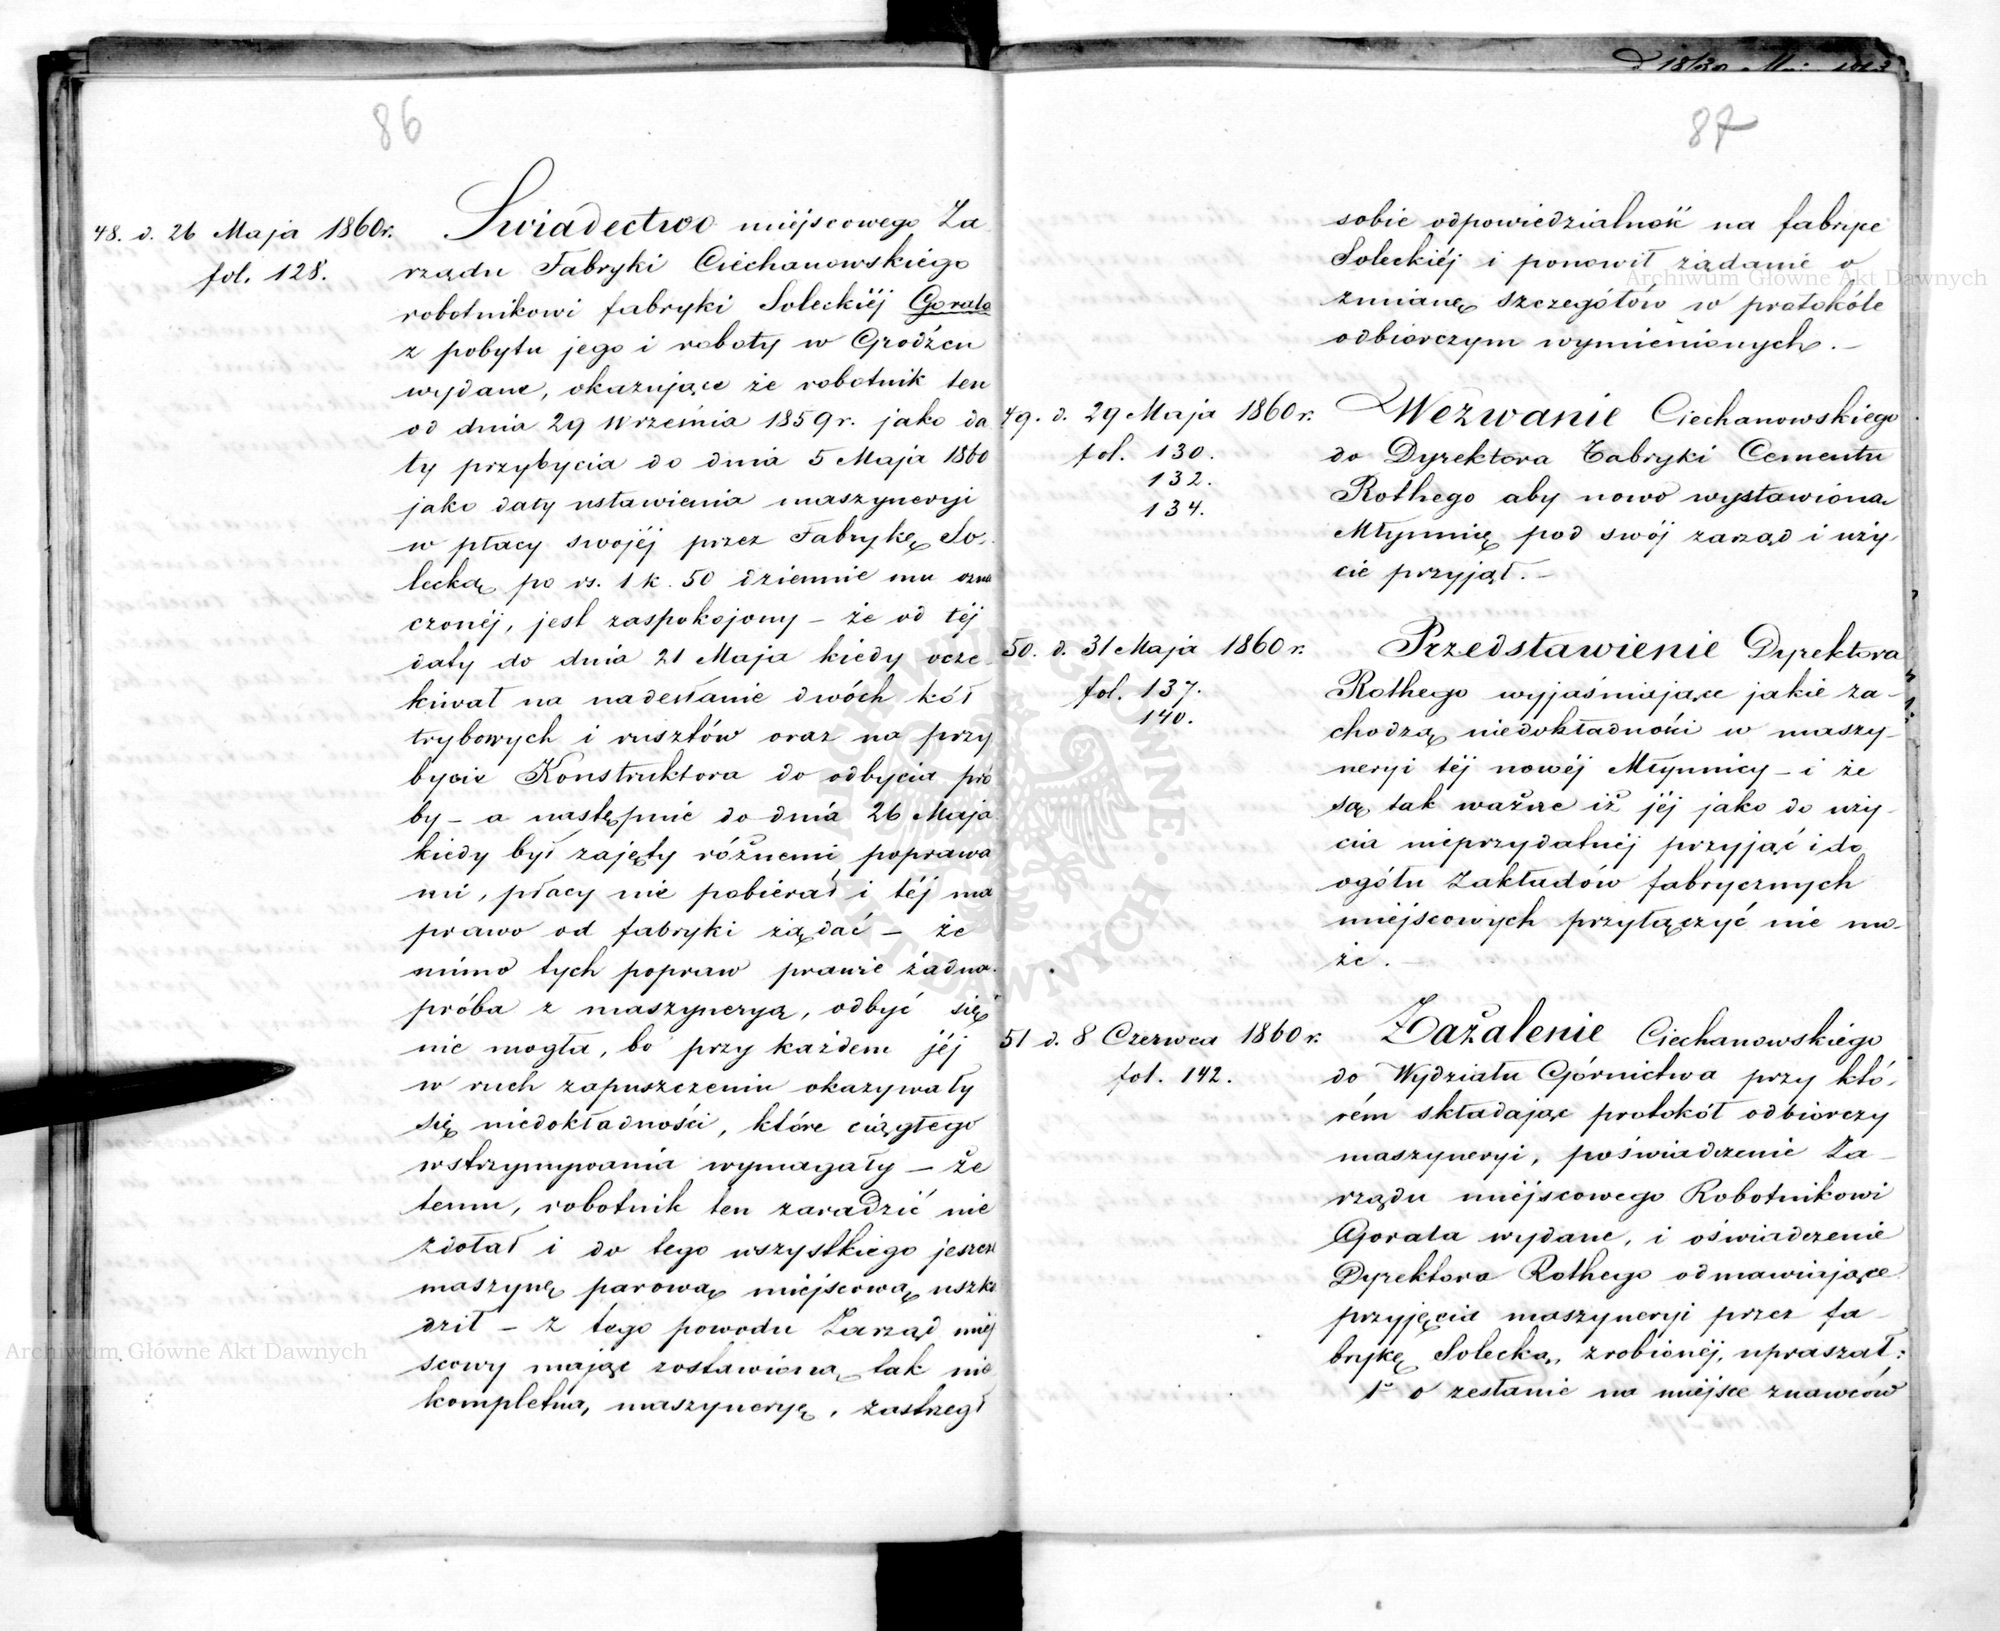 86
48. d. 26 Maja 1860r.
fol. 128.
Swiadectwo miejscowego Za
rządu Fabryki Ciechanowskiego
robotnikowi fabryki Soleckiéj Gorala
z pobytu jego i roboty w Grodźcu
wydane, okazujące że robotnik ten
od dnia 29 Września 1859r. jako da
ty przybycia do dnia 5 Maja 1860
jako daty ustawienia maszyneryi
w płacy swojéj przez Fabrykę So-
lecką po rs. 1 k. 50 dziennie mu ozna
czonéj, jest zaspokojony – że od téj
daty do dnia 21 Maja kiedy ocze-
kiwał na nadesłanie dwóch kół
trybowych i rusztów oraz na przy
bycie Konstruktora do odbycia pró
by – a następnie do dnia 26 Maja
kiedy był zajęty różnemi poprawa
mi, płacy nie pobierał i téj ma
prawo od fabryki żądać – że
mimo tych popraw prawie żadna
próba z maszyneryą, odbyć się
nie mogła, bo przy każdem jéj
w ruch zapuszczeniu okazywały
się niedokładności, które ciągłego
wstrzymywania wymagały – że
temu, robotnik ten zaradzić nie
zdołał i do tego wszystkiego jeszcze
maszynę parową miejscową uszko
dził – z tego powodu Zarząd miej
scowy mając zostawioną tak nie
kompletną maszyneryę, zastrzegł
87
sobie odpowiedzialność na fabryce
Soleckiéj i ponowił żądanie o
zmianę szczegółów w protokóle
odbiorczym wymienionych. –
49. d. 29 Maja 1860 r.
fol. 130.
132.
134.
Wezwanie Ciechanowskiego
do Dyrektora Fabryki Cementu
Rothego aby nowo wystawioną
Młynnię pod swój zarząd i uży-
cie przyjął. –
50. d. 31 Maja 1860 r.
fol. 137.
140.
Przedstawienie Dyrektora
Rothego wyjaśniające jakie za-
chodzą niedokładności w maszy-
neryi téj nowéj Młynnicy – i że
są tak ważne iż jéj jako do uży-
cia nieprzydatnéj przyjąć i do
ogółu Zakładów fabrycznych
miejscowych przyłączyć nie mo-
że. –
51 d. 8 Czerwca 1860 r.
fol. 142.
Zażalenie Ciechanowskiego
do Wydziału Górnictwa przy któ-
rém składając protokół odbiorczy
maszyneryi, poświadczenie Za-
rządu miejscowego Robotnikowi
Gorala wydane, i oświadczenie
Dyrektora Rothego odmawiające
przyjęcia maszyneryi przez fa-
brykę Solecką zrobionéj, upraszał:
1° o zesłanie na miejsce znawców
Archiwum Główne Akt Dawnych
Archiwum Główne Akt Dawnych